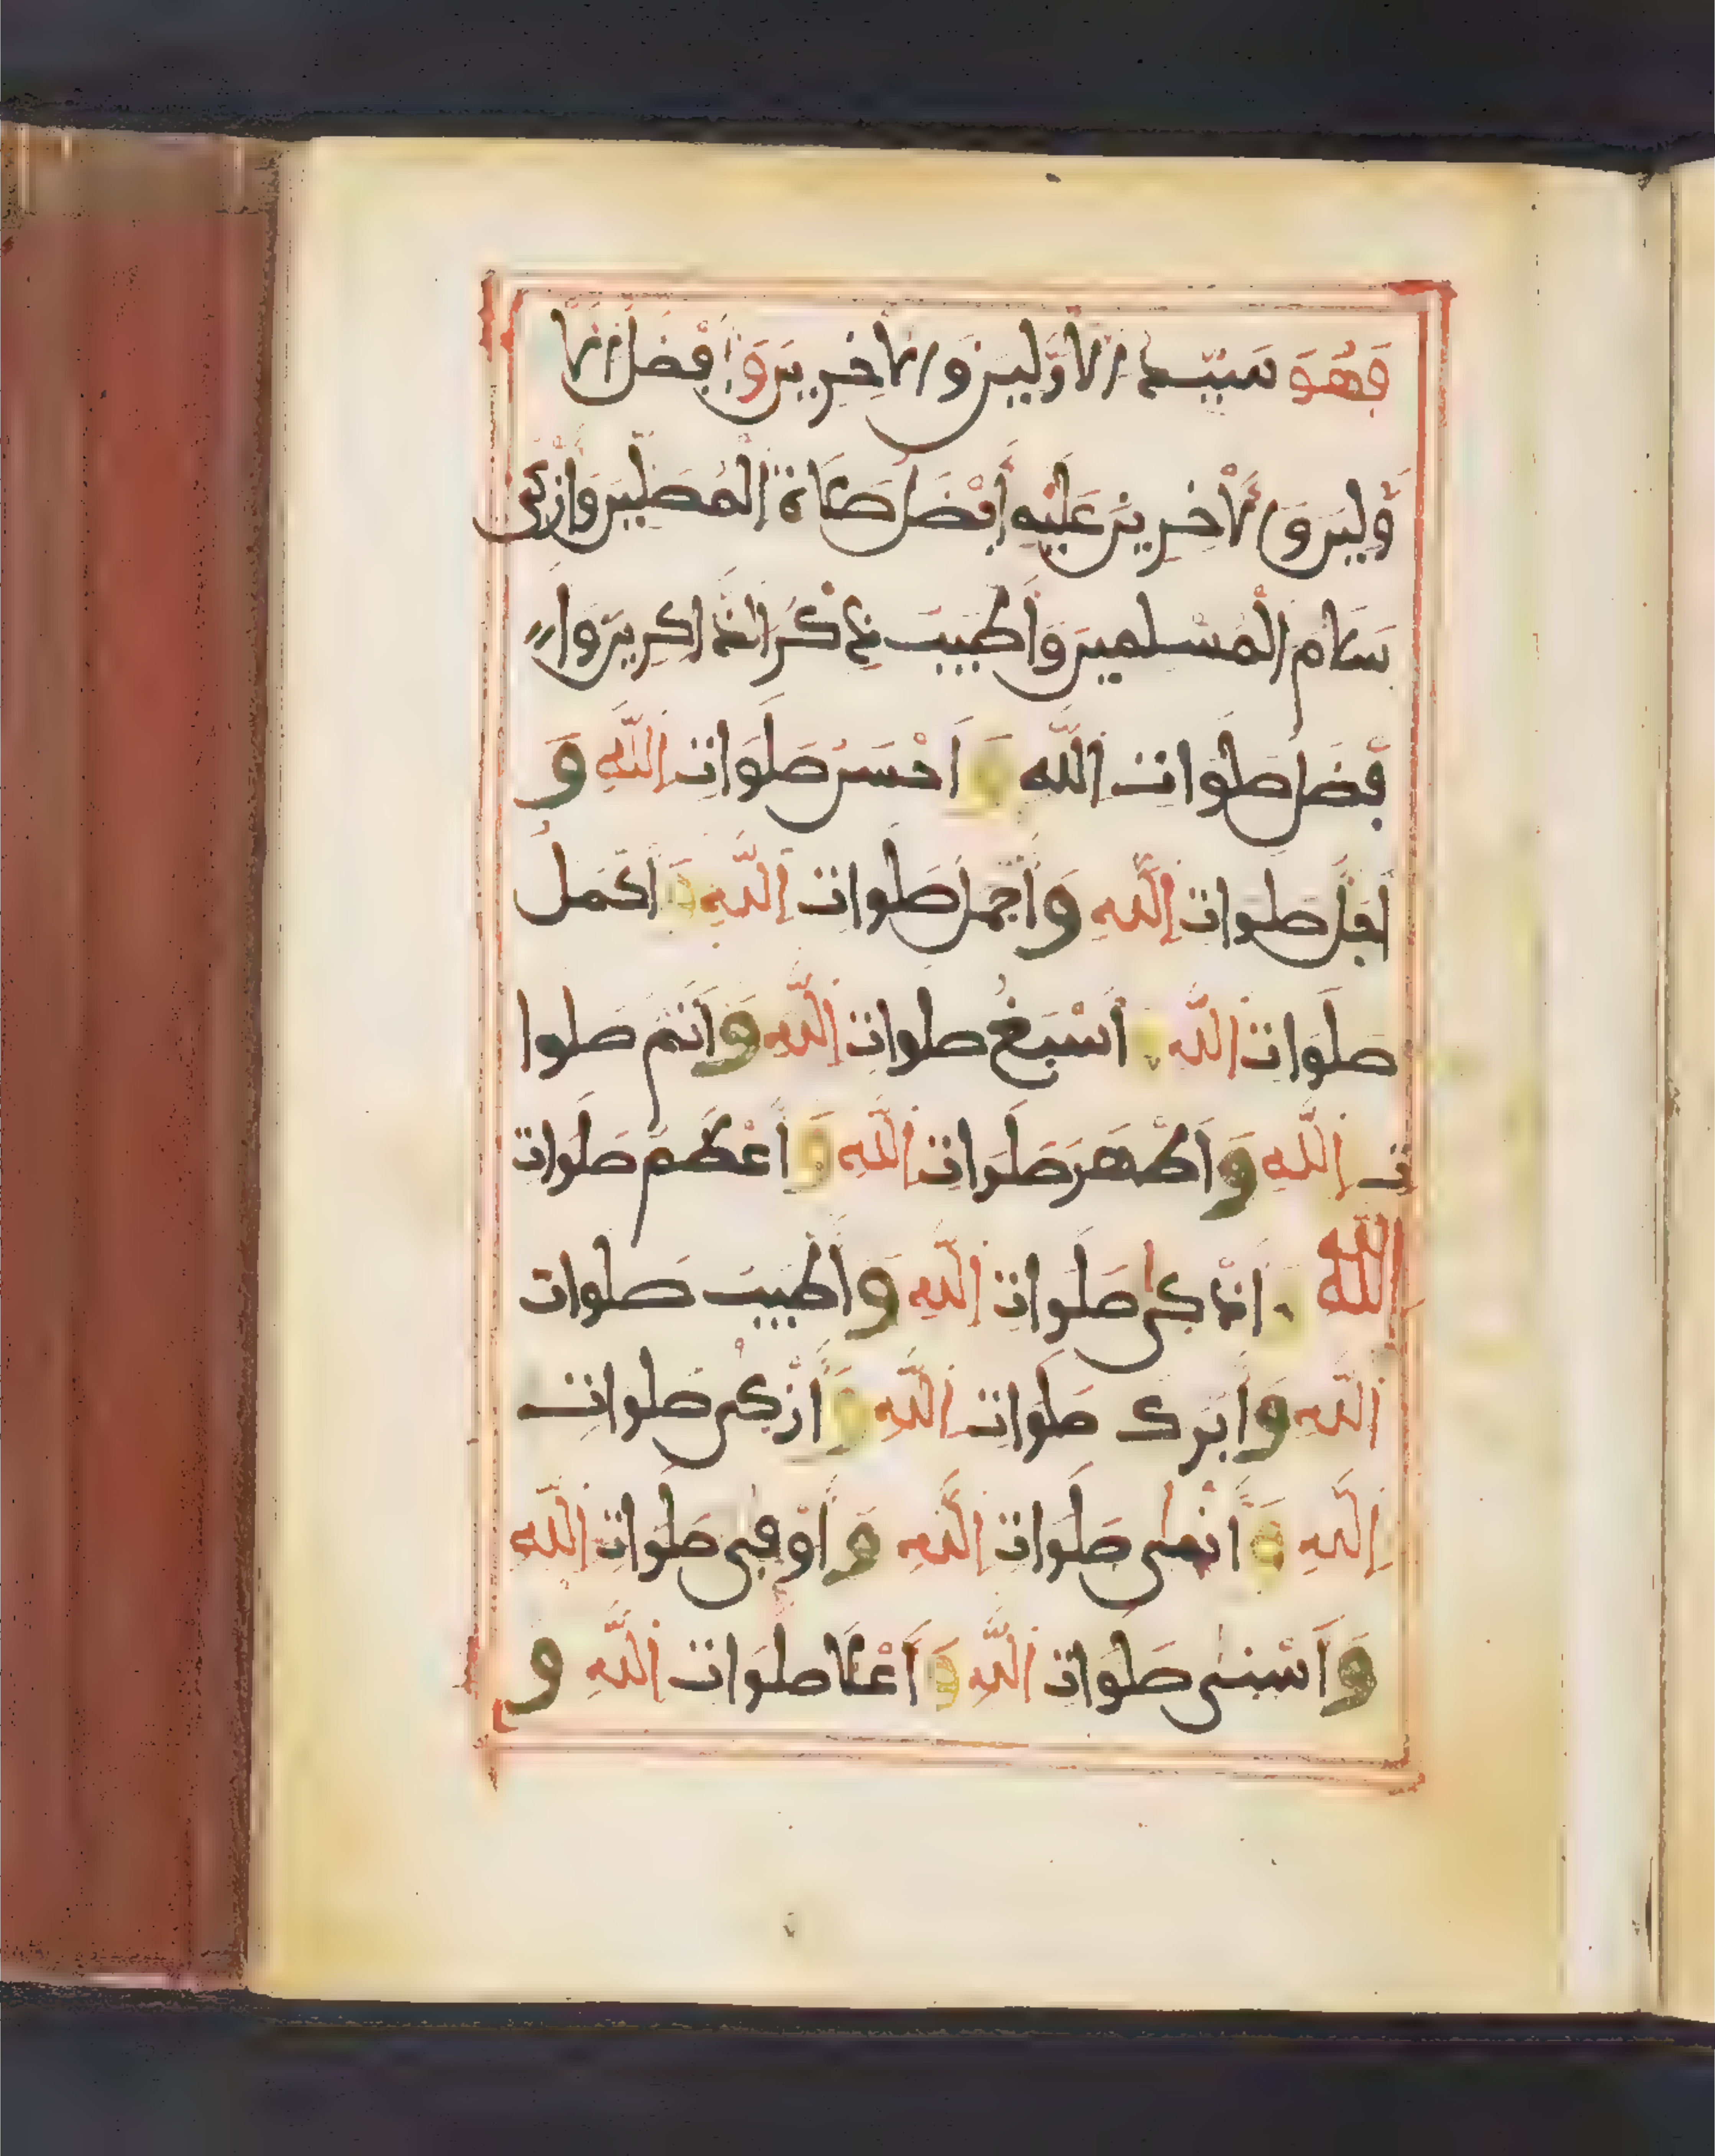 فَهُوَ سَيِّدُ الْأَوَّلِينَ وَالْأَخِرِينَ وَأَفْضَلُ الْأَ
وَّلِينَ وَالْأَخِرِينَ عَلَيْهِ أَفْضَلُ صَلَاةِ الْمُصَلِّينَ وَأَزْكَى
سَلَامِ الْمُسْلِمِينَ وَأَطْيَبُ ذِكْرِ الذَّاكِرِينَ وَأَ
فْضَلُ صَلَوَاتِ اللَّهِ وَأَحْسَنُ صَلَوَاتِ اللَّهِ وَ
أَجَلُّ صَلَوَاتِ اللَّهِ وَأَجْمَلُ صَلَوَاتِ اللَّهِ وَأَكْمَلُ
صَلَوَاتِ اللَّهِ وَأَسْبَغُ صَلَوَاتِ اللَّهِ وَأَتَمُّ صَلَوَا
تِ اللَّهِ وَأَظْهَرُ صَلَوَاتِ اللَّهِ وَأَعْظَمُ صَلَوَاتِ
اللَّهِ وَأَذْكَى صَلَوَاتِ اللَّهِ وَأَطْيَبُ صَلَوَاتِ
اللَّهِ وَأَبْرَكُ صَلَوَاتِ اللَّهِ وَأَزْكَى صَلَوَاتِ
اللَّهِ وَأَنْمَى صَلَوَاتِ اللَّهِ وَأَوْفَى صَلَوَاتِ اللَّهِ
وَأَسْنَى صَلَوَاتِ اللَّهِ وَأَعْلَا صَلَوَاتِ اللَّهِ وَ